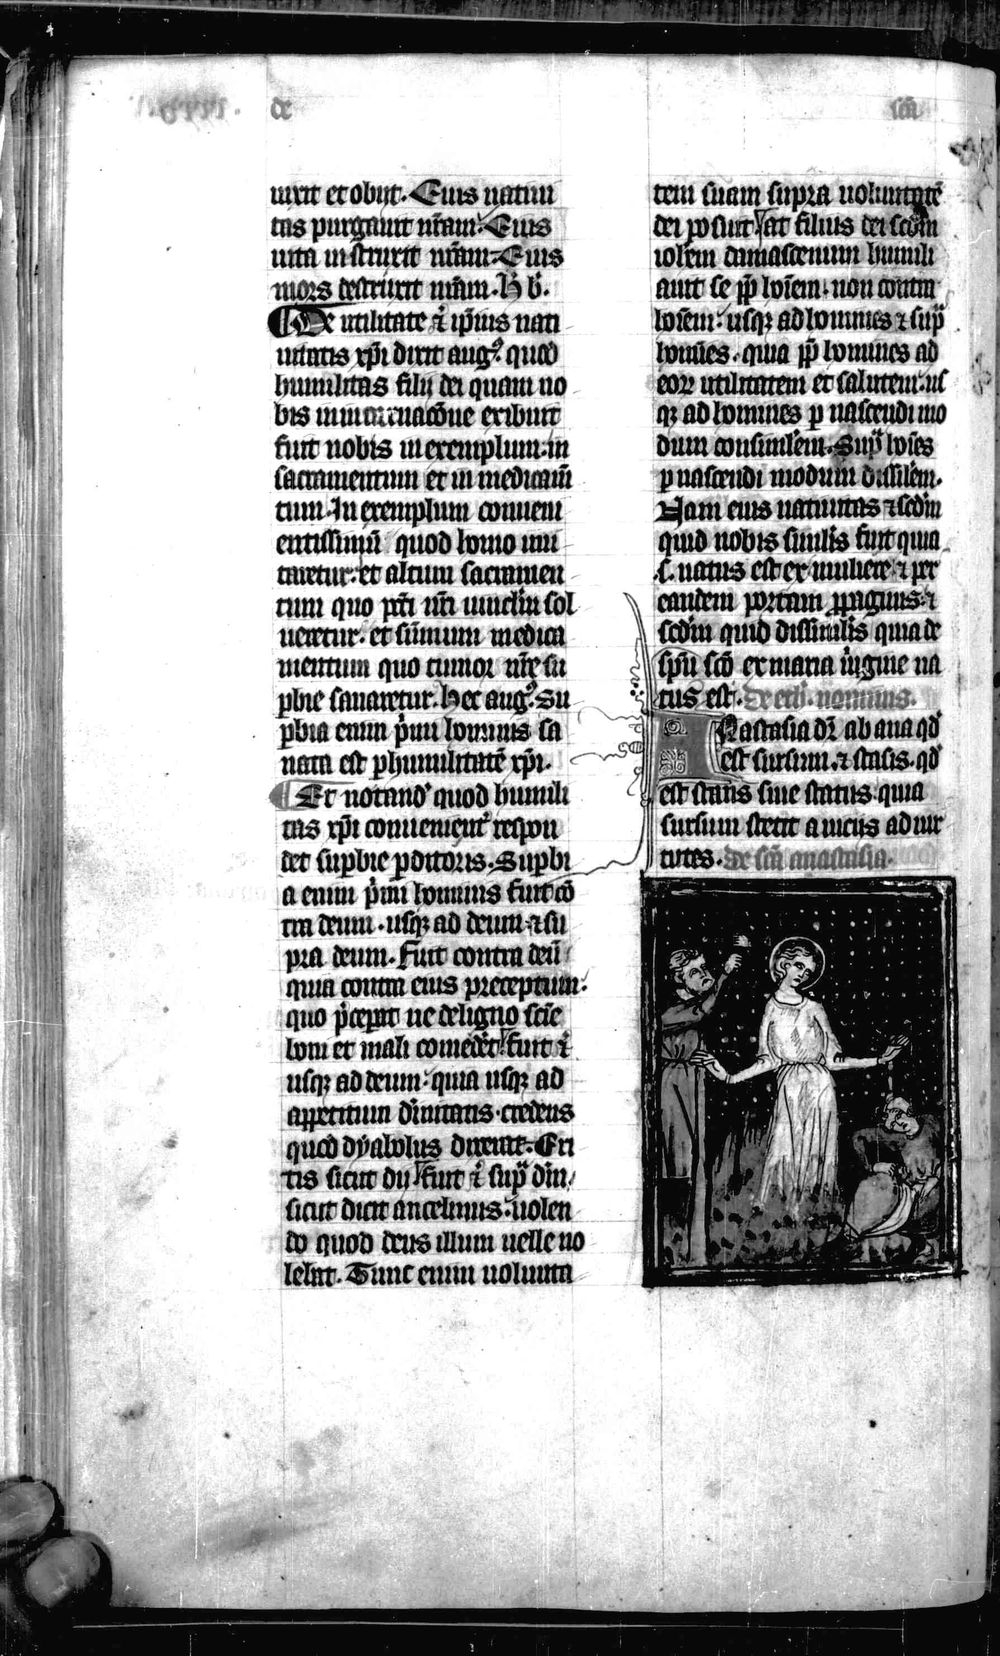 de
scā
uixit et obijt. Eius natiui
tas purgauit nr̄am. Eius
uita instruxit nr̄am. Eius
mors destruxit nr̄am. H b̄.
De utilitate ē ip̄ius nati
uitatis xp̄i dixit aug᷒. quod
humilitas filij dei quam no
bis in incarnacōne exibuit
fuit nobis in exemplum. in
sacramentum et in medicam̄
tum. In exemplum conueni
entissimū quod homo imi
taretur. et altum sacramen
tum quo pc̄ti nr̄i uinclm̄ sol
ueretur. et sūmum medica
mentum quo tumor nr̄e su
pbie sanaretur. Hec aug᷒. Su
pbia enim pͥmi hominis sa
nata est p humilitatē xp̄i.
Et notand᷒ quod humili
tas xp̄i conuenient᷒ respon
det supbie pditoris. Supbi
a enim pͥmi hominis fuit cō
tra deum. usq; ad deum ⁊ su
pra deum. Fuit contra deū
quia contra eius preceptum.
quo pͥcepit ne de ligno scīe
boni et mali comedēt. fuit ē
usq; ad deum. quia usq; ad
appetitum diuitatis. credens
quod dyabolus dixerat. Eri
tis sicut dij. fuit ē supͣ dm̄.
sicut dicit ancelmus. uolen
do quod deus illum uelle no
lebat. Tunc enim uolunta
tem suam supra uoluntatē
dei posuit. at filius dei scdm̄
iohem damascenum humili
auit se pp̄ hoīem. non contra
hoīem. usq; ad homines ⁊ supͣ
homīes. quia pp̄ homines ad
eor̄ utilitatem et salutem. us
q; ad homines p nascendi mo
dum consimilem. Supͣ hoīes
p nascendi modum dissilem.
Nam eius natiuitas ⁊ scdm̄
quid nobis similis fuit quia
.s. natus est ex muliere. ⁊ per
eandem portam ppaginis. ⁊
scdm̄ quid dissimilis quia de
spū scō ex maria uͥgine na
tus est. de eth. nominis.
Anastasia dr̄ ab ana qd̄
est sursum. ⁊ stasis. qd̄
est stans siue status. quia
sursum stetit a uicijs ad uir
tutes. de scā anastasia.